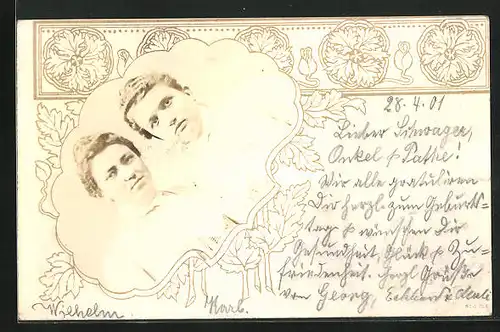 28.4.01
Lieber Schwager,
Onkel & Pathe!
Wir alle gratuliren
Dir herzl. zum Geburts-
tag & wünschen Dir
Gesundheit, Glück & Zu-
friedenheit. Herzl Grüße
von Georg,
Wilhelm Karl.